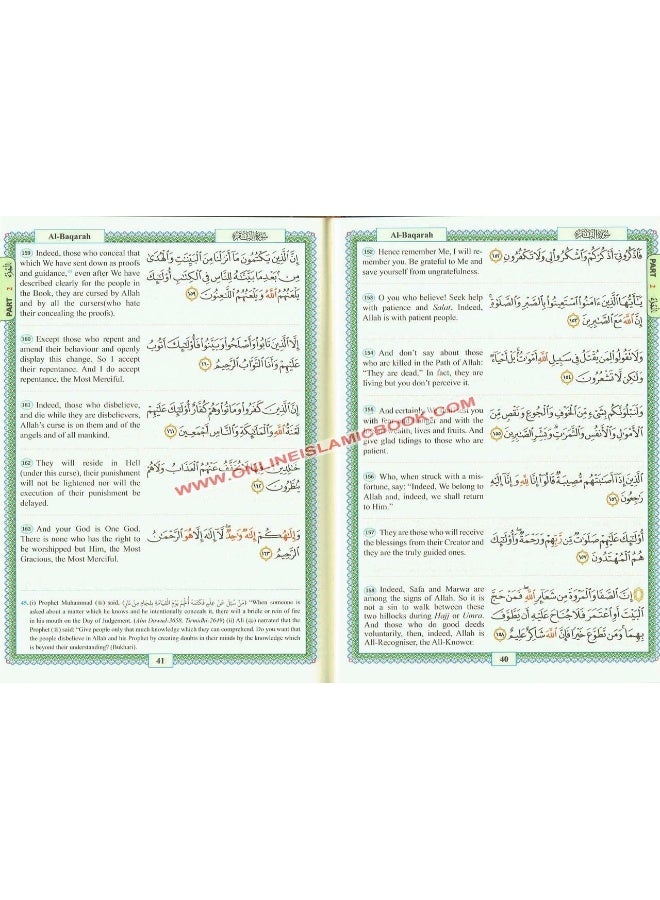 Al-Baqarah
سورة البقرة
PART 2
152 Hence remember Me, I will re-
member you. Be grateful to Me and
save yourself from ungratefulness.
فَاذْكُرُونِي أَذْكُرْكُمْ وَاشْكُرُوا لِي وَلَا تَكْفُرُونِ ١٥٢
153 O you who believe! Seek help
with patience and Salat. Indeed,
Allah is with patient people.
يَا أَيُّهَا الَّذِينَ ءَامَنُوا اسْتَعِينُوا بِالصَّبْرِ وَالصَّلَاةِ
إِنَّ اللَّهَ مَعَ الصَّابِرِينَ ١٥٣
154 And don't say about those
who are killed in the Path of Allah:
"They are dead." In fact, they are
living but you don't perceive it.
وَلَا تَقُولُوا لِمَن يُقْتَلُ فِي سَبِيلِ اللَّهِ أَمْوَاتٌ بَلْ أَحْيَاءٌ
وَلَكِن لَّا تَشْعُرُونَ ١٥٤
155 And certainly, We test you
with fear, hunger and with the
health, lives and fruits. And
give glad tidings to those who are
patient.
وَلَنَبْلُوَنَّكُم بِشَيْءٍ مِّنَ الْخَوْفِ وَالْجُوعِ وَنَقْصٍ مِّنَ
الْأَمْوَالِ وَالْأَنفُسِ وَالثَّمَرَاتِ وَبَشِّرِ الصَّابِرِينَ ١٥٥
156 Who, when struck with a mis-
fortune, say: "Indeed, We belong to
Allah and, indeed, we shall return
to Him."
الَّذِينَ إِذَا أَصَابَتْهُم مُّصِيبَةٌ قَالُوا إِنَّا لِلَّهِ وَإِنَّا إِلَيْهِ
رَاجِعُونَ ١٥٦
157 They are those who will receive
the blessings from their Creator and
they are the truly guided ones.
أُولَئِكَ عَلَيْهِمْ صَلَوَاتٌ مِّن رَّبِّهِمْ وَرَحْمَةٌ وَأُولَئِكَ
هُمُ الْمُهْتَدُونَ ١٥٧
158 Indeed, Safa and Marwa are
among the signs of Allah. So it is
not a sin to walk between these
two hillocks during Hajj or Umra.
And those who do good deeds
voluntarily, then, indeed, Allah is
All-Recogniser, the All-Knower.
إِنَّ الصَّفَا وَالْمَرْوَةَ مِن شَعَائِرِ اللَّهِ فَمَنْ حَجَّ
الْبَيْتَ أَوِ اعْتَمَرَ فَلَا جُنَاحَ عَلَيْهِ أَن يَطَّوَّفَ
بِهِمَا وَمَن تَطَوَّعَ خَيْرًا فَإِنَّ اللَّهَ شَاكِرٌ عَلِيمٌ ١٥٨
40
Al-Baqarah
سورة البقرة
PART 2
159 Indeed, those who conceal that
which We have sent down as proofs
and guidance,45 even after We have
described clearly for the people in
the Book, they are cursed by Allah
and by all the cursers(who hate
their concealing the proofs).
إِنَّ الَّذِينَ يَكْتُمُونَ مَا أَنزَلْنَا مِنَ الْبَيِّنَاتِ وَالْهُدَى
مِن بَعْدِ مَا بَيَّنَّاهُ لِلنَّاسِ فِي الْكِتَابِ أُولَئِكَ
يَلْعَنُهُمُ اللَّهُ وَيَلْعَنُهُمُ اللَّاعِنُونَ ١٥٩
160 Except those who repent and
amend their behaviour and openly
display this change. So I accept
their repentance. And I do accept
repentance, the Most Merciful.
إِلَّا الَّذِينَ تَابُوا وَأَصْلَحُوا وَبَيَّنُوا فَأُولَئِكَ أَتُوبُ
عَلَيْهِمْ وَأَنَا التَّوَّابُ الرَّحِيمُ ١٦٠
161 Indeed, those who disbelieve,
and die while they are disbelievers,
Allah's curse is on them and of the
angels and of all mankind.
إِنَّ الَّذِينَ كَفَرُوا وَمَاتُوا وَهُمْ كُفَّارٌ أُولَئِكَ عَلَيْهِمْ
لَعْنَةُ اللَّهِ وَالْمَلَائِكَةِ وَالنَّاسِ أَجْمَعِينَ ١٦١
162 They will reside in Hell
(under this curse), their punishment
will not be lightened nor will the
execution of their punishment be
delayed.
خَالِدِينَ فِيهَا لَا يُخَفَّفُ عَنْهُمُ الْعَذَابُ وَلَا هُمْ
يُنظَرُونَ ١٦٢
163 And your God is One God.
There is none who has the right to
be worshipped but Him, the Most
Gracious, the Most Merciful.
وَإِلَهُكُمْ إِلَهٌ وَاحِدٌ لَّا إِلَهَ إِلَّا هُوَ الرَّحْمَنُ
الرَّحِيمُ ١٦٣
45. (i) Prophet Muhammad (ﷺ) said, (مَنْ سُئِلَ عَنْ عِلْمٍ فَكَتَمَهُ أُلْجِمَ يَوْمَ الْقِيَامَةِ بِلِجَامٍ مِنْ نَارٍ) "When someone is
asked about a matter which he knows and he intentionally conceals it, there will a bridle or rein of fire
in his mouth on the Day of Judgement. (Abu Dawud-3658, Tirmidhi-2649) (ii) Ali (رض) narrated that the
Prophet (ﷺ) said: "Give people only that much knowledge which they can comprehend. Do you want that
the people disbelieve in Allah and his Prophet by creating doubts in their minds by the knowledge which
is beyond their understanding? (Bukhari).
41
WWW.ONLINEISLAMICBOOK.COM